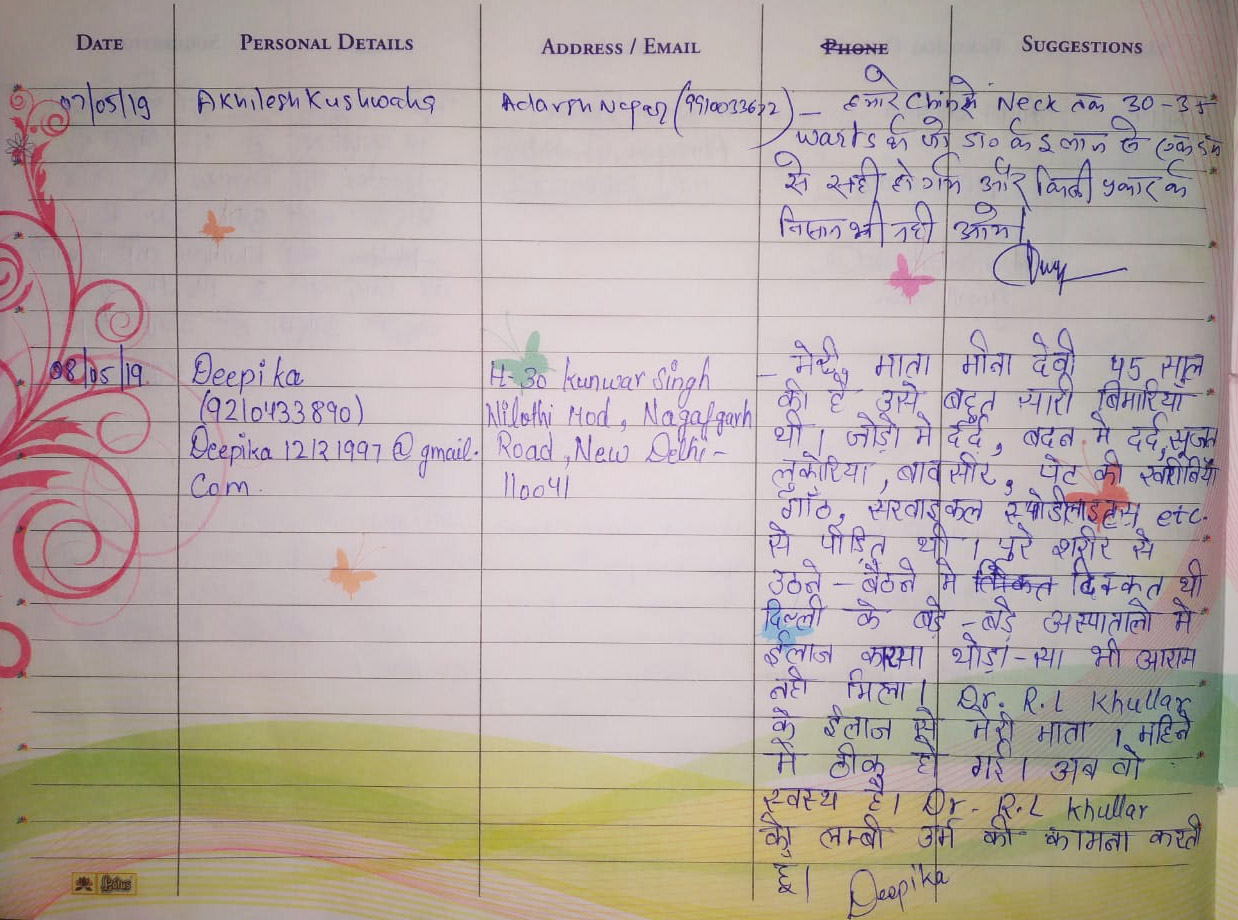 DATE PERSONAL DETAILS ADDRESS / EMAIL PHONE SUGGESTIONS
07/05/19 Akhilesh Kushwaha Adarsh Nagar (9910033672) – हमारे Chin से Neck तक 30-35
warts थे जो डा० के इलाज से एकदम
से सही हो गये और किसी प्रकार के
निसान भी नही आये।
08/05/19 Deepika H-30 Kunwar Singh – मेरी माता मीना देवी 45 साल
(9210433890) Nilothi Mod, Nagafgarh की है उसे बहुत सारी बिमारिया
Deepika12121997@gmail. Road, New Delhi- थी। जोड़ो मे दर्द, बदन मे दर्द, सूजन
Com. 110041 लुकोरिया, बावसीर, पेट की खराबिया
गाँठ, सरवाइकल etc.
से पीड़ित थी। पुरे शरीर से
उठने-बैठने मे दिक्कत थी
दिल्ली के बड़े-बड़े अस्पातालो मे
ईलाज करया थोड़ा-सा भी आराम
नही मिला। Dr. R.L Khullar
के ईलाज से मेरी माता 1 महिने
मे ठीक हो गई। अब वो
स्वस्थ है। Dr. R.L Khullar
की लम्बी उर्म की कामना करती
हू। Deepika
Lotus